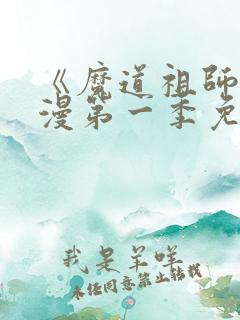 《魔道祖师
漫第一季免
我是羊咩
未经同意禁止转载